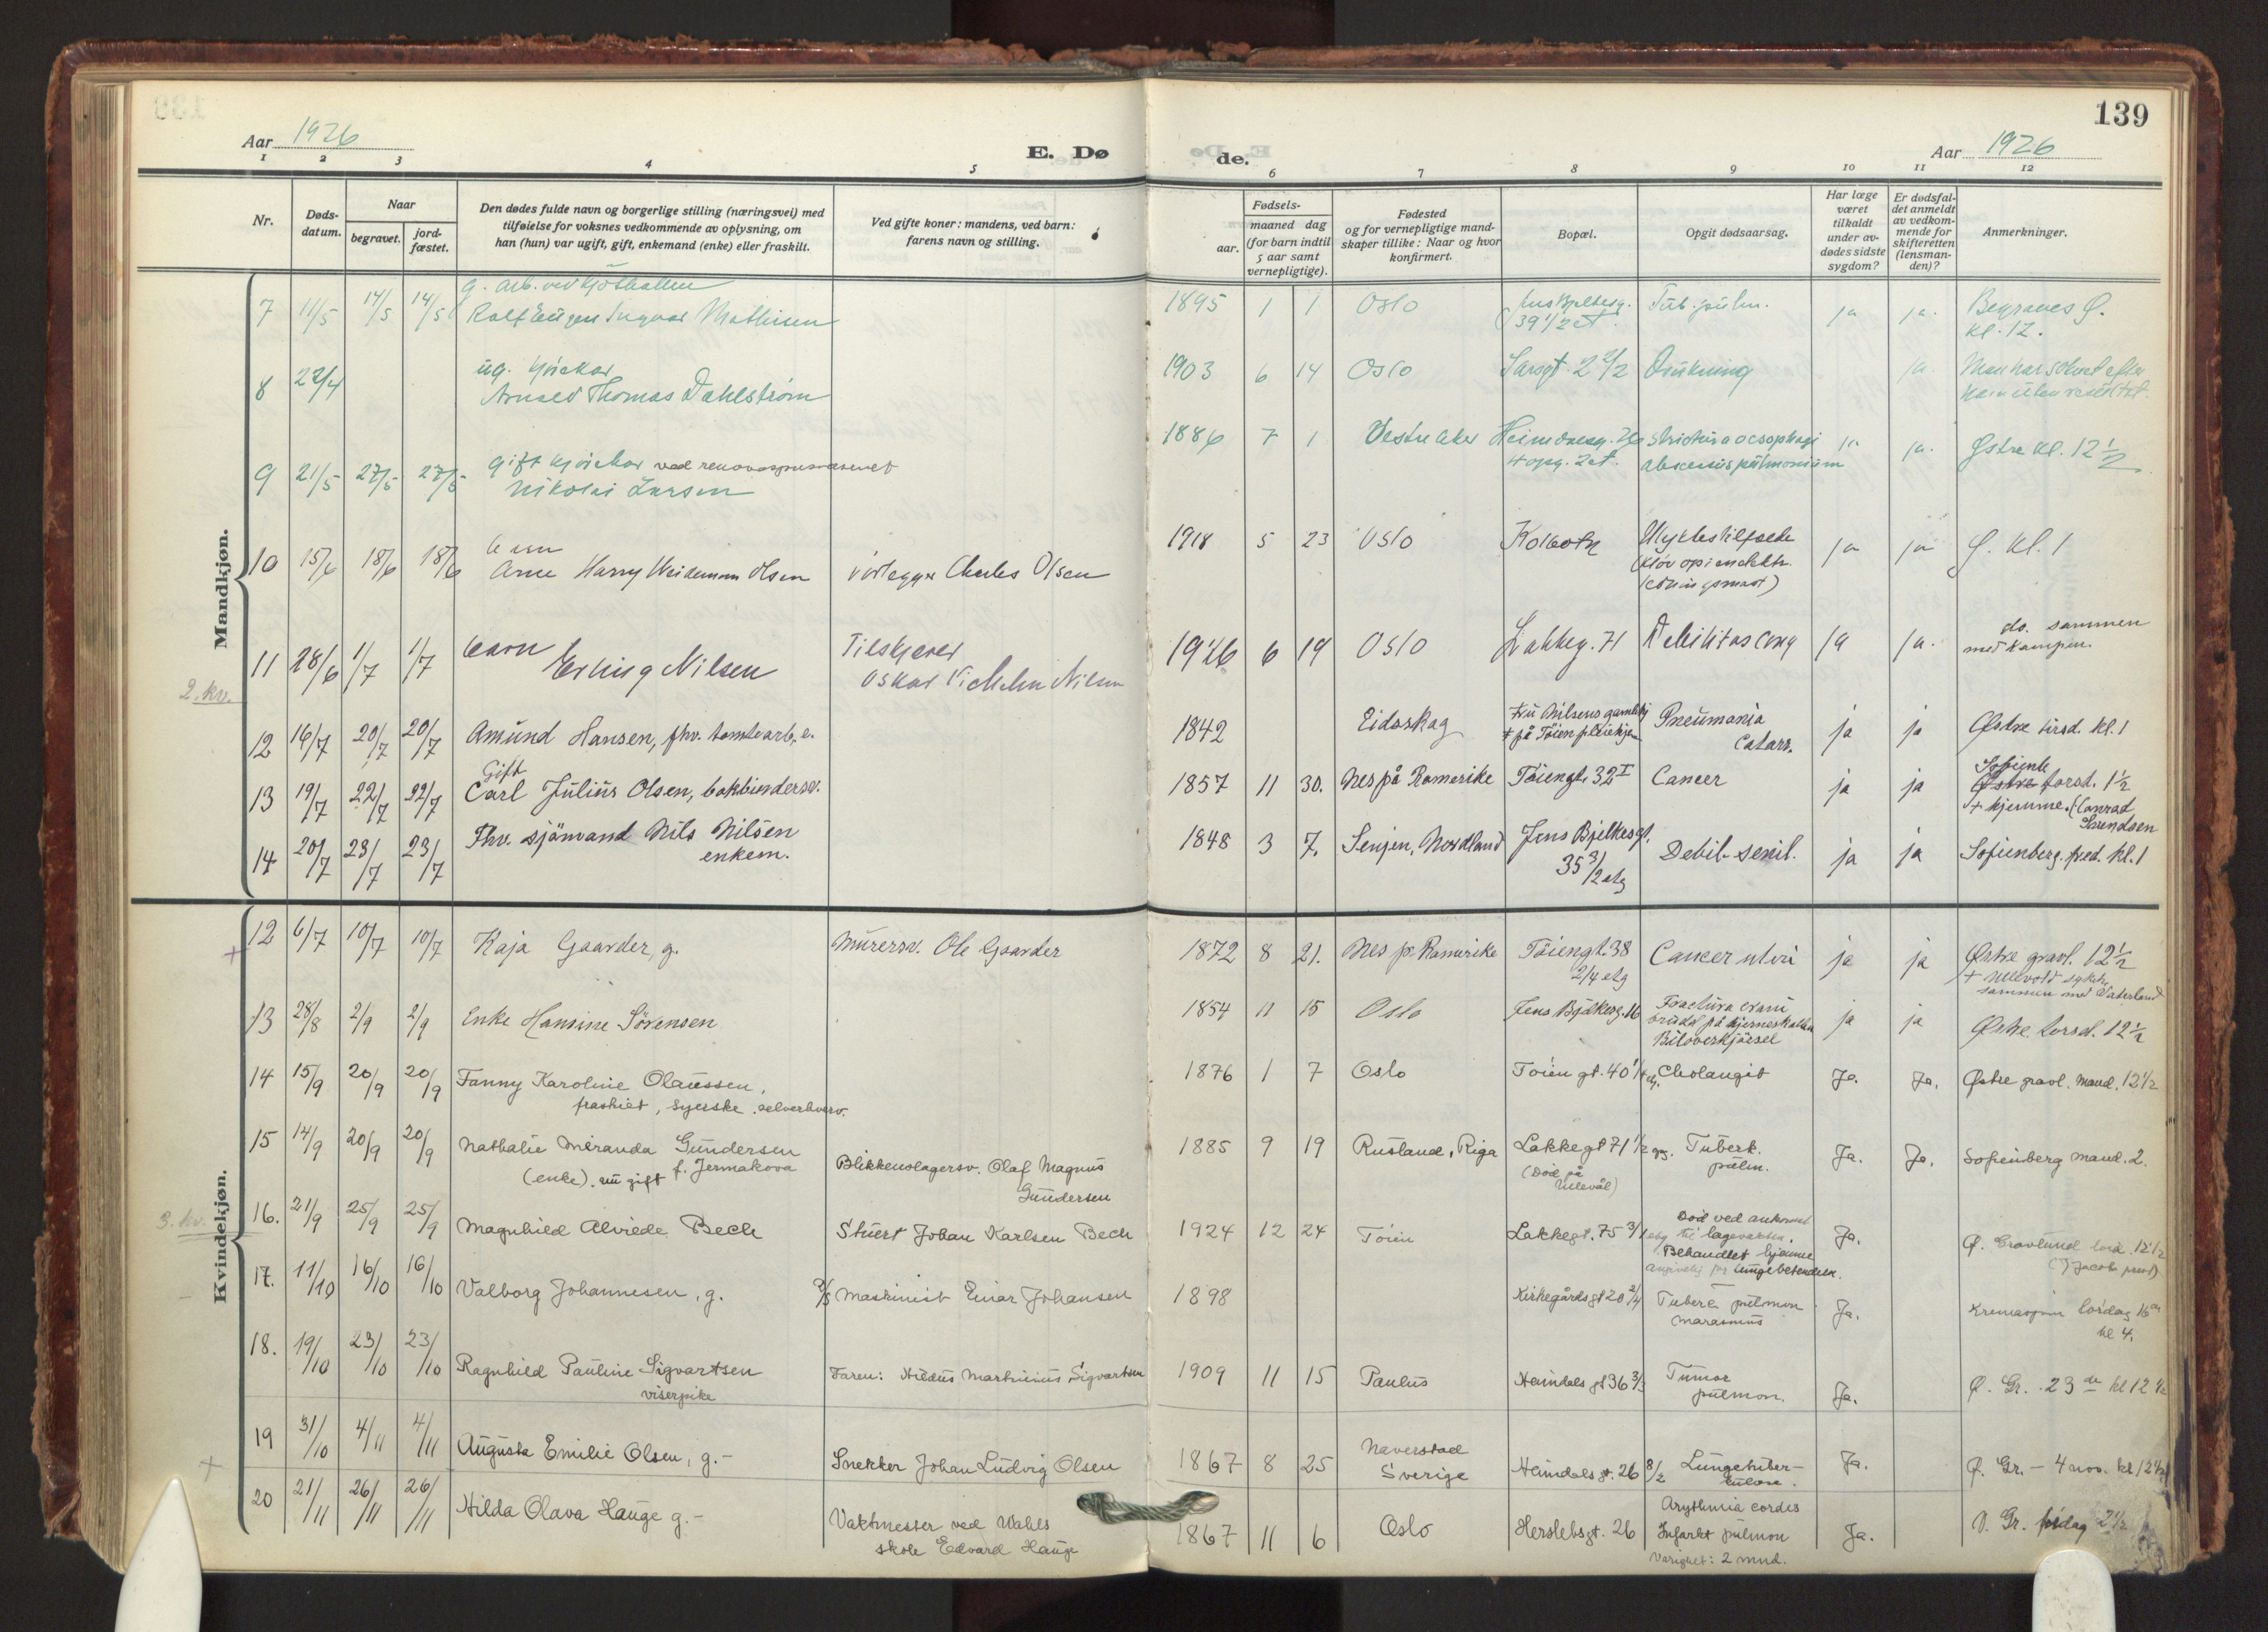 139
Aar 1926
E. Dø
de.
Aar 1926
1 2 3 4 5 6 7 8 9 10 11 12
Nr.
Døds-
datum.
Naar
begravet.
jord-
fæstet.
Den dødes fulde navn og borgerlige stilling (næringsvei) med
tilføielse for voksnes vedkommende av oplysning, om
han (hun) var ugift, gift, enkemand (enke) eller fraskilt.
Ved gifte koner: mandens, ved barn:
farens navn og stilling.
Fødsels-
aar.
maaned dag
(for barn indtil
5 aar samt
vernepligtige).
Fødested
og for vernepligtige mand-
skaper tillike: Naar og hvor
konfirmert.
Bopæl.
Opgit dødsaarsag.
Har læge
været
tilkaldt
under av-
dødes sidste
sygdom?
Er dødsfal-
det anmeldt
av vedkom-
mende for
skifteretten
(lensman-
den)?
Anmerkninger.
Mandkjøn.
7 11/5 14/5 14/5
g. arb. ved
Ralf Eugen Ingvar Mathisen
1895 1 1 Oslo
39 1/2 et.
Tub. pulm. ja ja.
Begraves Ø.
kl. 12.
8 22/4
ug. kjörekar
Arnold Thomas Dahlström
1903 6 14 Oslo Sarsgt. 2 2/2 Drukning ja.
Man har söket efter
ham uten resultat.
9 21/5 27/5 27/5
gift kjörekar ved renovasjonsvesenet
Nikolai Larsen
1886 7 1 Vestre Aker Heimdalsg. 26
4 opg. 2 et.
Strictura oesophagi
abscessus pulmonium
ja ja. Østre kl. 12 1/2
10 15/6 18/6 18/6
barn
Arne Harry Weidemann Olsen
rörlegger Charles Olsen
1918 5 23 Oslo Kolbotn
Ulykkestilfælde
(Klöv op i en elektr.
ledningsmast)
ja ja Ø. kl. 1
2. kv.
11 28/6 1/7 1/7
barn
Erling Nilsen
Tilskjærer
Oskar Vilhelm Nilsen
1926 6 19 Oslo Lakkeg. 71 Debilitas cong ja ja.
do. sammen
med Kampen.
12 16/7 20/7 20/7 Amund Hansen, fhv. tomtearb., e.
1842 Eidsskog
Fru Nilsens gamlehj
+ på Töien pleiehje
Pneumonia
Catarr.
ja ja Østre tirsd. kl. 1
13 19/7 22/7 22/7
Gift
Carl Julius Olsen, bokbindersv.
1857 11 30. Nes på Romerike Töiengt. 32 I Cancer ja ja
Sofienb
Østre torsd. 1 1/2
+ hjemme. (Conrad
Svendsen
14 20/7 23/7 23/7
Fhv. sjömand Nils Nilsen
enkem.
1848 3 7. Senjen, Nordland Jens Bjelkesgt.
35 3/2 etg
Debil. senil. ja ja Sofienberg. fred. kl. 1
Kvindekjøn.
+ 12 6/7 10/7 10/7 Kaja Gaarder, g. Murersv. Ole Gaarder
1872 8 21. Nes p. Romerike Töiengt. 38
2/4 etg
Cancer uteri ja ja Østre gravl. 12 1/2
+ Ullevold sykehus
sammen med Vaterland
13 28/8 2/9 2/9 Enke Hansine Sörensen
1854 11 15 Oslo Jens Bjelkesg. 16
Fractura cranii
brudd på hjerneskallen
Biloverkjörsel
ja ja Østre torsd. 12 1/2
14 15/9 20/9 20/9 Fanny Karoline Olaussen,
fraskilt, syerske. selverhverv.
1876 1 7 Oslo Töien gt. 40 1/4 etg. Cholangit Ja. Ja. Østre gravl. Mand. 12 1/2
15 14/9 20/9 20/9 Nathalie Miranda Gundersen
(enke). nu gift f. Jermakova
Blikkenslagersv. Olaf Magnus
Gundersen
1885 9 19 Rusland, Riga Lakkegt 71 1/2 og.
(Död på
Ullevål)
Tuberk.
pulm.
Ja. Ja. Sofienberg mand. 2.
3. kv.
16. 21/9 25/9 25/9 Magnhild Alvilde Bech Stuert Johan Karlsen Bech
1924 12 24 Töien Lakkegt. 75 3/1 etg
Död ved ankomst
til lægevakten.
Behandlet hjemme
angivelig for lungebetendelse.
Ja. Ø. Gravlund lörd. 12 1/2
(Jacobs prest)
17. 11/10 16/10 16/10 Valborg Johannesen, g. Maskinist Einar Johansen
1898 Kirkegårdsgt 20 2/4 Tuberk. pulmon
marasmus
Ja. Kremasjon lördag 16de
kl 4.
18. 19/10 23/10 23/10 Ragnhild Pauline Sigvartsen
viserpike
Faren: Hildus Martinius Sigvartsen
1909 11 15 Paulus Heimdalsgt 36 3/3 Tumor
pulmon.
Ja. Ø. Gr. 23de kl 12 1/2
19 31/10 4/11 4/11 Augusta Emilie Olsen, g.- Snekker Johan Ludvig Olsen
1867 8 25 Naverstad
Sverige
Heimdalsgt. 26 3/2 Lungetuber-
kulose.
Ja. Ø. Gr. - 4 nov. kl 12 1/2
+
20 21/11 26/11 26/11 Hilda Olava Hauge g.- Vaktmester ved Wahls
skole Edvard Hauge
1867 11 6 Oslo Herslebsgt. 26
Arythmia cordis
Infarkt pulmon
Varighet: 2 mnd.
Ja. V. Gr. fredag 2 1/2